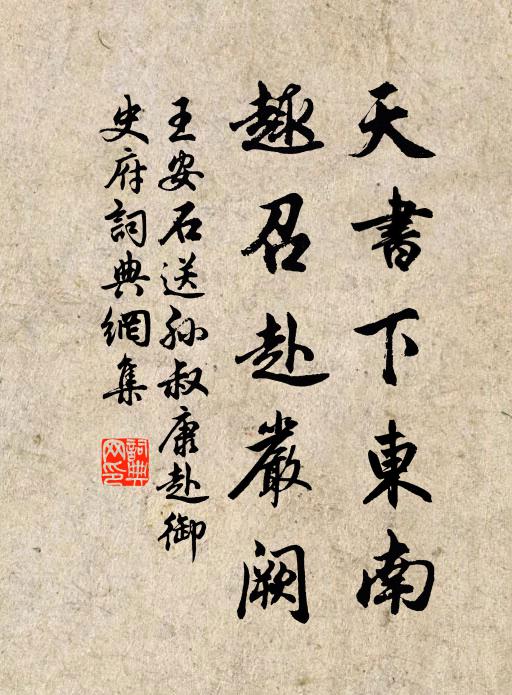 天書下東南
趣召赴嚴闕
王安石送孙叔康赴御
史府詞典網集
詞典网印